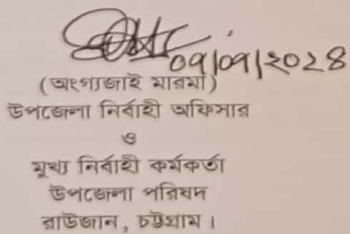 ০৭/০৭/২০২৪
(অংগ্যজাই মারমা)
উপজেলা নির্বাহী অফিসার
ও
মুখ্য নির্বাহী কর্মকর্তা
উপজেলা পরিষদ
রাউজান, চট্টগ্রাম।